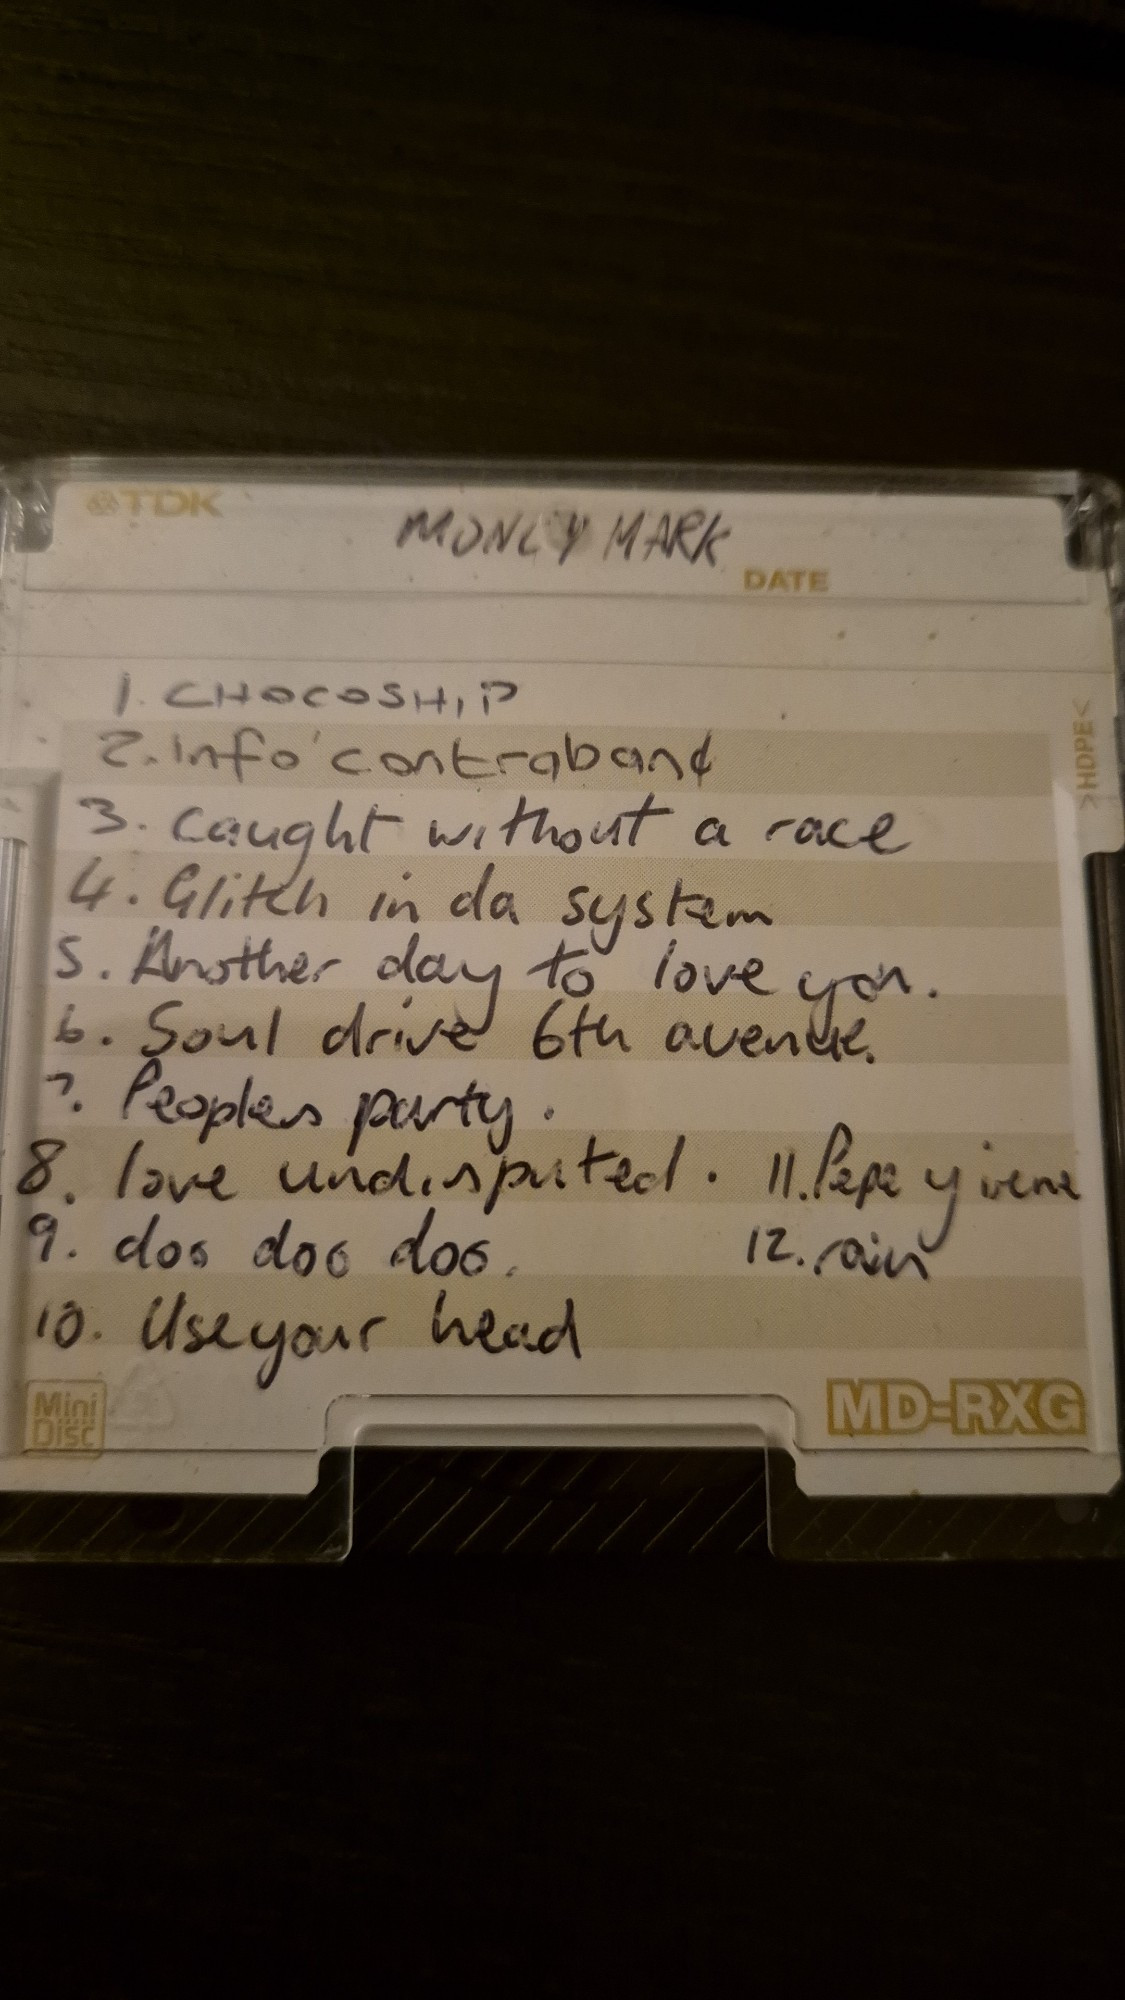 TDK
MONEY MARK
DATE
1. CHOCOSHIP
2. Info contraband
>HDPE<
3. Caught without a race
4. Glitch in da system
5. Another day to love you.
6. Soul drive 6th avenue.
7. Peoples party.
8. love undisputed. 11. Pepe y irene
9. doo doo doo. 12. rain
10. Use your head
Mini Disc
MD-RXG